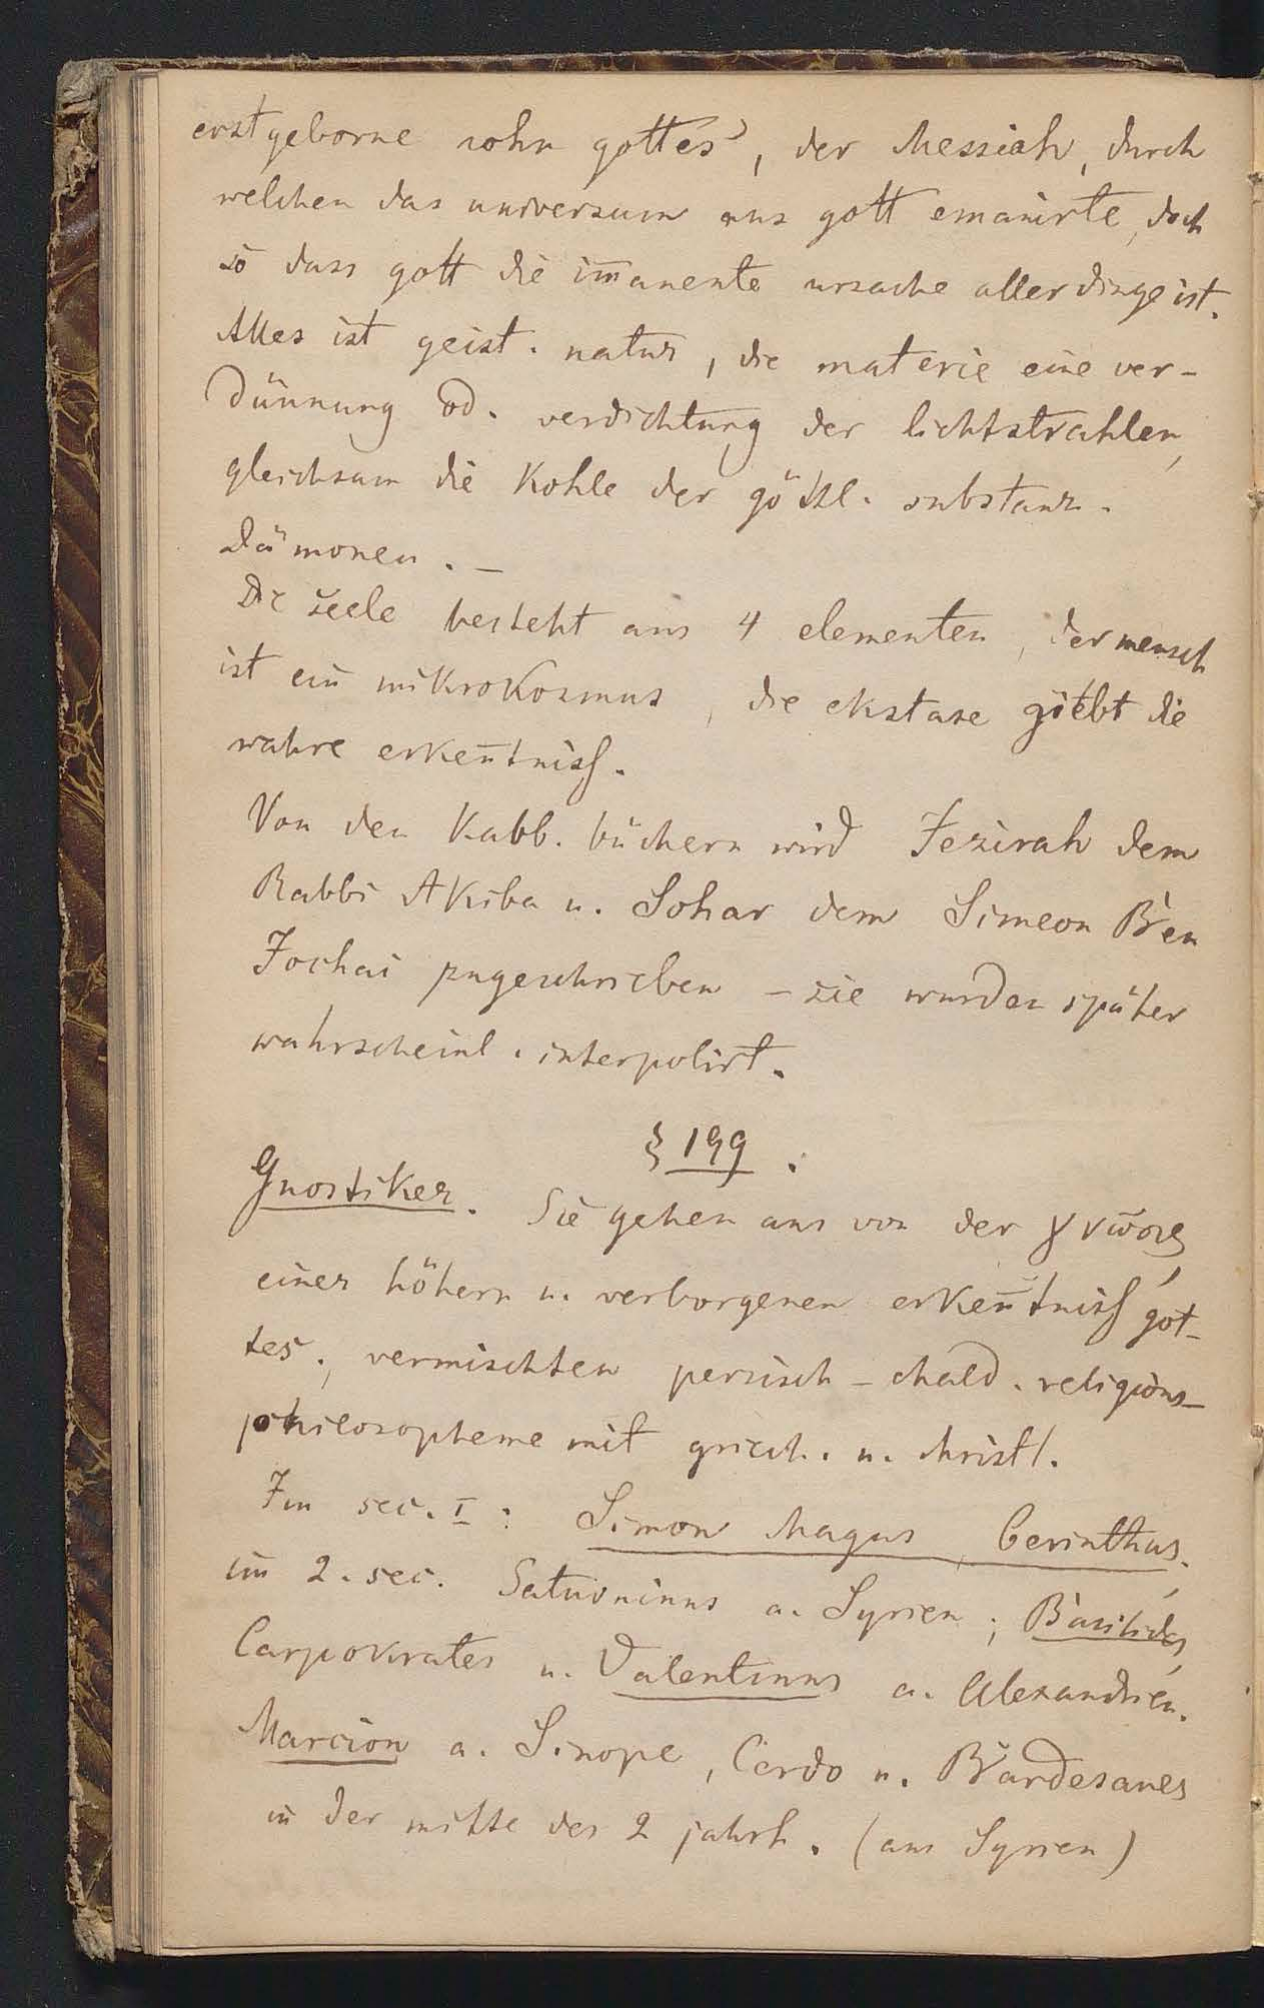 erstgeborne sohn gottes, der Messiah, durch
welchen das universum aus gott emanirte, doch
so dass gott die im̅anente ursache aller dinge ist.
Alles ist geist. natur, die materie eine ver-
dünnung od. verdichtung der lichtstrahlen,
gleichsam die Kohle der göttl. substanz.
Dämonen. –
Die seele besteht aus 4 elementen, der mensch
ist ein mikrokosmus, die ekstase giebt die
wahre erken̅tniss.
Von den Kabb. büchern wird Jezirah dem
Rabbi Akiba u. Sohar dem Simeon Ben
Jochai zugeschrieben – sie wurden später
wahrscheinl. interpolirt.
§ 199.
Gnostiker. Sie gehen aus von der γνῶσις,
einer höhern u. verborgenen erken̅tniss got-
tes, vermischten persisch-chald. religions-
philosopheme mit griech. u. christl.
Im sec. I: Simon Magus, Cerinthus.
im 2. sec. Saturninus a. Syrien; Basilides,
Carpokrates u. Valentinus a. Alexandrien.
Marcion a. Sinope, Cerdo u. Bardesanes
in der mitte des 2 jahrh. (aus Syrien)